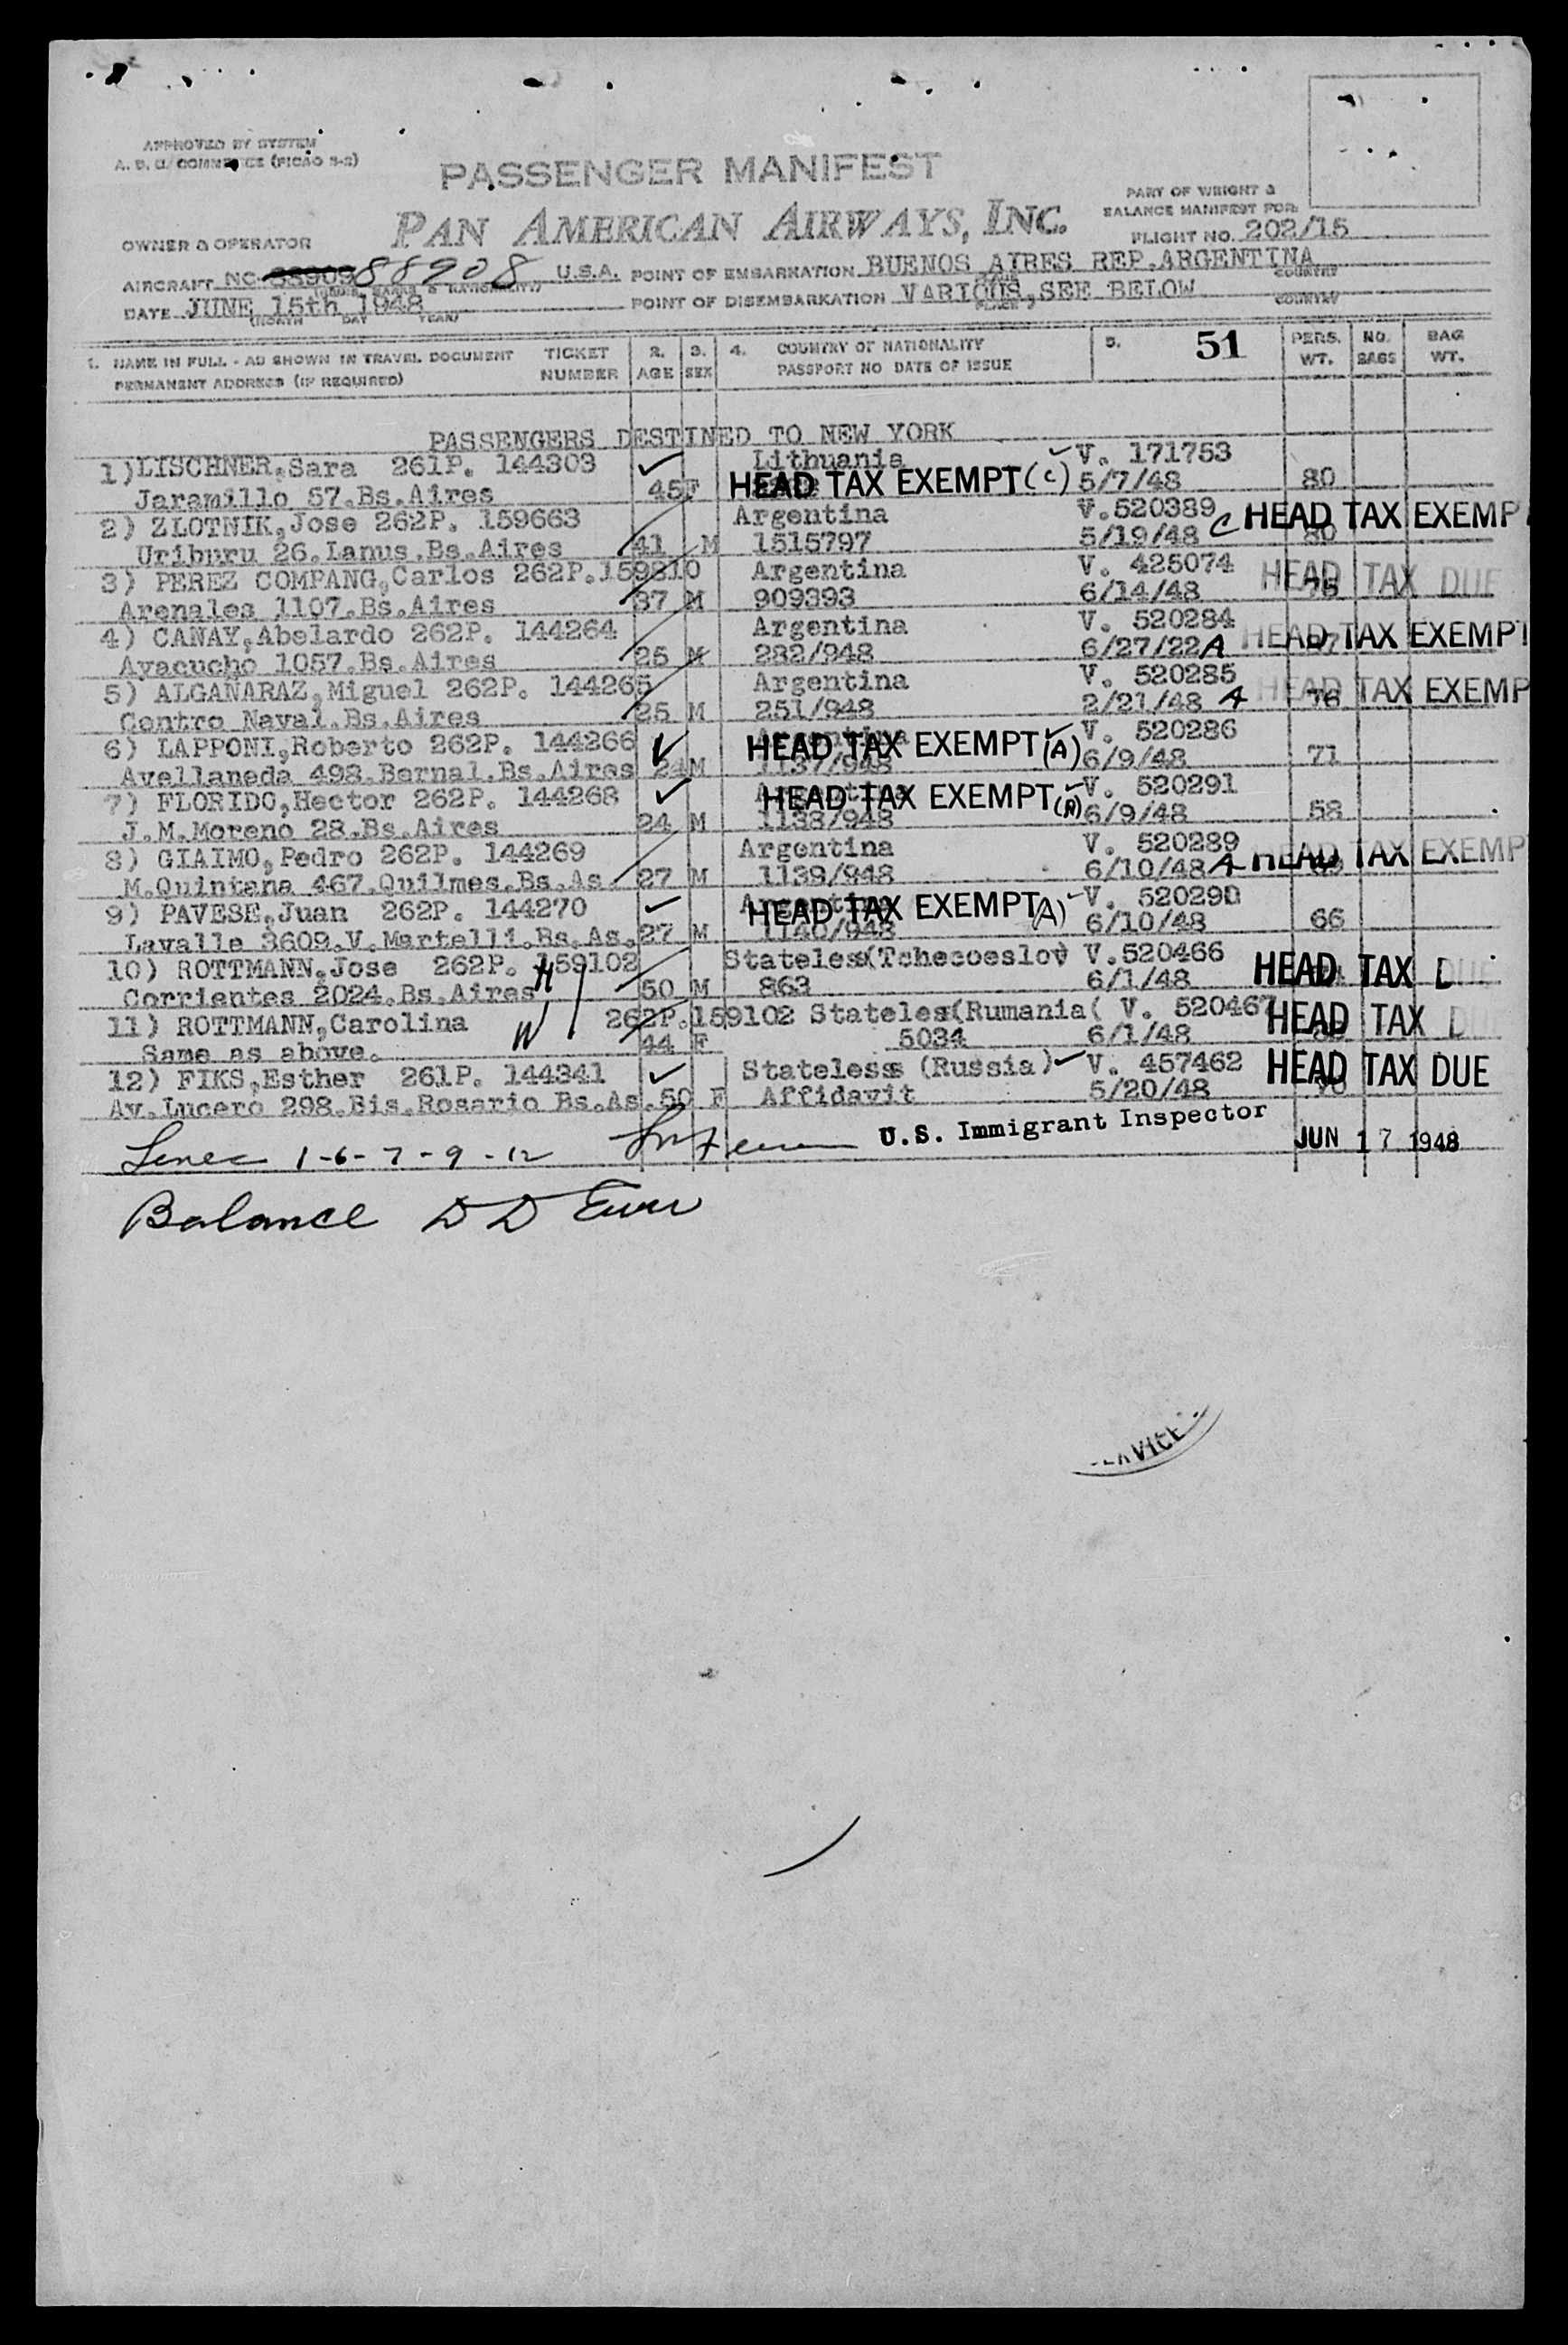 APPROVED BY SYSTEM
A. B. U. COMMERCE (PICAO S-2)
PASSENGER MANIFEST
PAN AMERICAN AIRWAYS, INC.
PART OF WEIGHT &
BALANCE MANIFEST FOR:
FLIGHT NO. 202/15
OWNER & OPERATOR
AIRCRAFT NC 88909 88908 U.S.A. POINT OF EMBARKATION BUENOS AIRES REP.ARGENTINA
(MARKS & NATIONALITY) COUNTRY
DATE JUNE 15th 1948 POINT OF DISEMBARKATION VARIOUS, SEE BELOW
(MONTH DAY YEAR) (PLACE) COUNTRY
1. NAME IN FULL - AS SHOWN IN TRAVEL DOCUMENT TICKET 2. 3. 4. COUNTRY OF NATIONALITY 5. 51 PERS. NO. BAG
PERMANENT ADDRESS (IF REQUIRED) NUMBER AGE SEX PASSPORT NO DATE OF ISSUE WT. BAGS WT.
PASSENGERS DESTINED TO NEW YORK
1) LISCHNER,Sara 261P. 144303 Lithuania V. 171753
Jaramillo 57.Bs.Aires 45 F HEAD TAX EXEMPT (C) 5/7/48 80
2) ZLOTNIK,Jose 262P. 159663 Argentina V.520389 C HEAD TAX EXEMP
Uriburu 26.Lanus.Bs.Aires 41 M 1515797 5/19/48 80
3) PEREZ COMPANG,Carlos 262P.159810 Argentina V. 425074 HEAD TAX DUE
Arenales 1107.Bs.Aires 37 M 909393 6/14/48
4) CANAY,Abelardo 262P. 144264 Argentina V. 520284 HEAD TAX EXEMPT
Ayacucho 1057.Bs.Aires 25 M 282/948 6/27/22 A
5) ALGAÑARAZ,Miguel 262P. 144265 Argentina V. 520285 HEAD TAX EXEMP
Centro Naval.Bs.Aires 25 M 251/948 2/21/48 A 76
6) LAPPONI,Roberto 262P. 144266 HEAD TAX EXEMPT (A) V. 520286
Avellaneda 498.Bernal.Bs.Aires 24 M 1137/948 6/9/48 71
7) FLORIDO,Hector 262P. 144268 HEAD TAX EXEMPT (A) V. 520291
J.M.Moreno 28.Bs.Aires 24 M 1138/948 6/9/48 58
8) GIAIMO,Pedro 262P. 144269 Argentina V. 520289 HEAD TAX EXEMP
M.Quintana 467.Quilmes.Bs.As. 27 M 1139/948 6/10/48 A
9) PAVESE,Juan 262P. 144270 Argentina HEAD TAX EXEMPT (A) V. 520290
Lavalle 3609.V.Martelli.Bs.As. 27 M 1140/948 6/10/48 66
10) ROTTMANN,Jose 262P. 159102 Stateless(Tchecoeslov) V.520466 HEAD TAX DUE
Corrientes 2024.Bs.Aires H 50 M 863 6/1/48
11) ROTTMANN,Carolina W 262P.159102 Stateless(Rumania( V. 520467 HEAD TAX DUE
Same as above. 44 F 5034 6/1/48
12) FIKS,Esther 261P. 144341 Stateless (Russia) V. 457462 HEAD TAX DUE
Av.Lucero 298.Bis.Rosario Bs.As. 50 F Affidavit 5/20/48 70
Lines 1-6-7-9-12 U.S. Immigrant Inspector JUN 17 1948
Balance D D